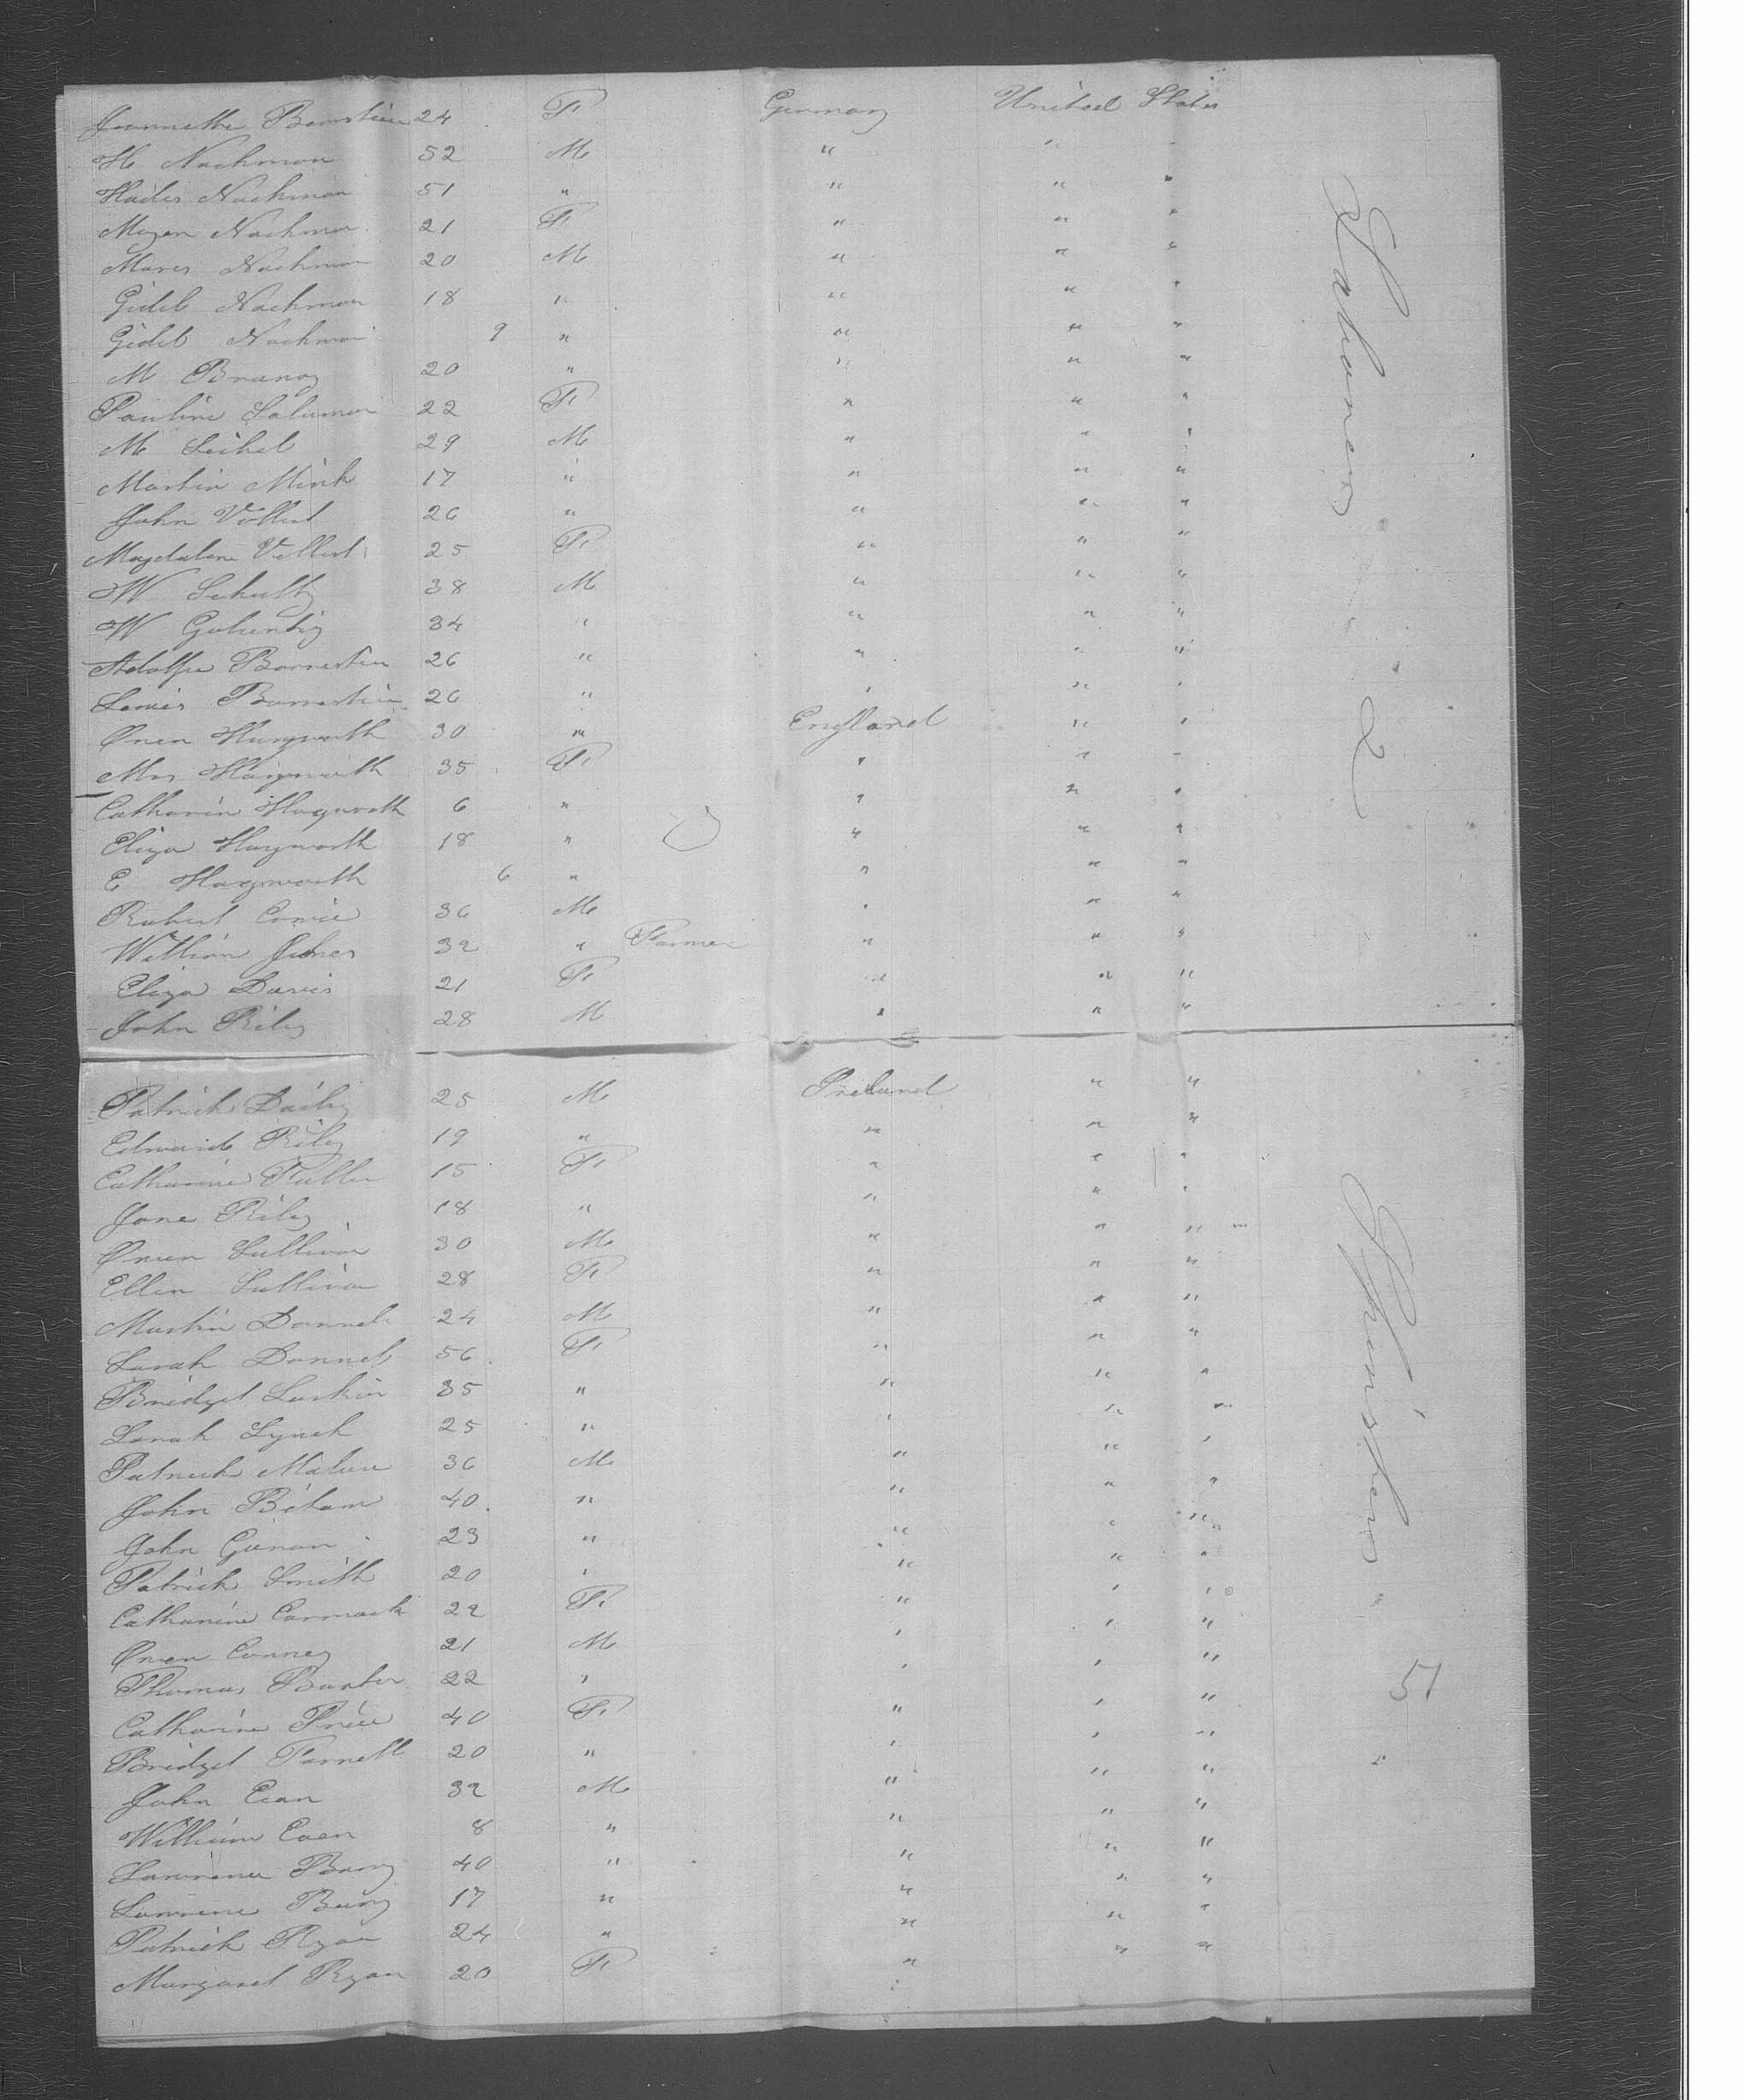 Jeannette Bornstein 24 F Germany United States
H Nachman 52 M " " "
Hades Nachman 51 " " " "
Nachman 21 F " " "
Mares Nachman 20 M " " "
Gidel Nachman 18 " " " "
Gidel Nachman 9 " " " "
M 20 " " " "
Pauline Salumon 22 F " " "
M Seihel 29 M " " "
Martin Mink 17 " " " "
John Vollert 26 " " " "
Magdalene Vollert 25 F " " "
W Schultz 38 M " " "
W 34 " " " "
Adolphe Bornestien 26 " " " "
Lewis Bornestien 26 " " " "
Owen Haigworth 30 " England " "
Mrs Haigworth 35 F " " "
Catharin Hagworth 6 " " " "
Eliza Haigworth 18 " " " "
E Hagworth 6 " " " "
Robert 36 M " " "
William Jones 32 " Farmer " " "
Eliza Davis 21 F " " "
John Riley 28 M " " "
Patrick Daily 25 M Ireland " "
Edward Riley 19 " " " "
Catharine Fuller 15 F " " "
Jane Riley 18 " " " "
Owen Sullivan 30 M " " "
Ellen Sullivan 28 F " " "
Martin Donnel 24 M " " "
Sarah Donnel 56 F " " "
Bridget Larkin 35 " " " "
Sarah Lynch 25 " " " "
Patrick Malone 36 M " " "
John 40 " " " "
John 23 " " " "
Patrick Smith 20 " " " "
Catharine Cormack 22 F " " "
Owen Conney 21 M " " "
Thomas Baxter 22 " " " "
Catharine Price 40 F " " "
Bridget Farnell 20 " " " "
John Eean 32 M " " "
William Eaen 8 " " " "
Lawrence Barry 40 " " " "
Lawrence Barry 17 " " " "
Patrick Ryan 24 " " " "
Margaret Ryan 20 F " " "
Labourers 2
Spinsters 51